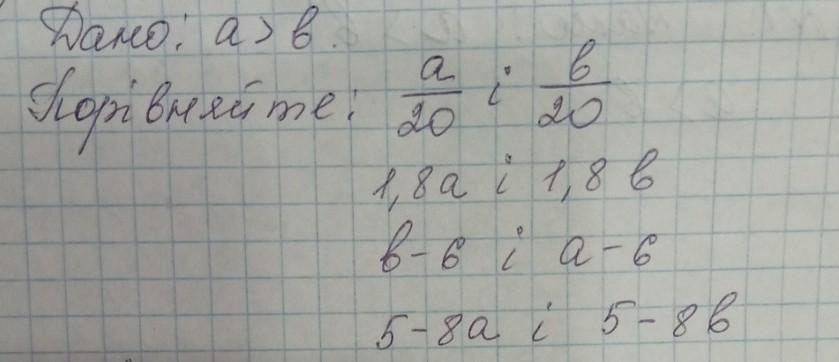 Дано: a > b.
Порівняйте: a/20 і b/20
1,8a і 1,8b
b-6 і a-6
5-8a і 5-8b